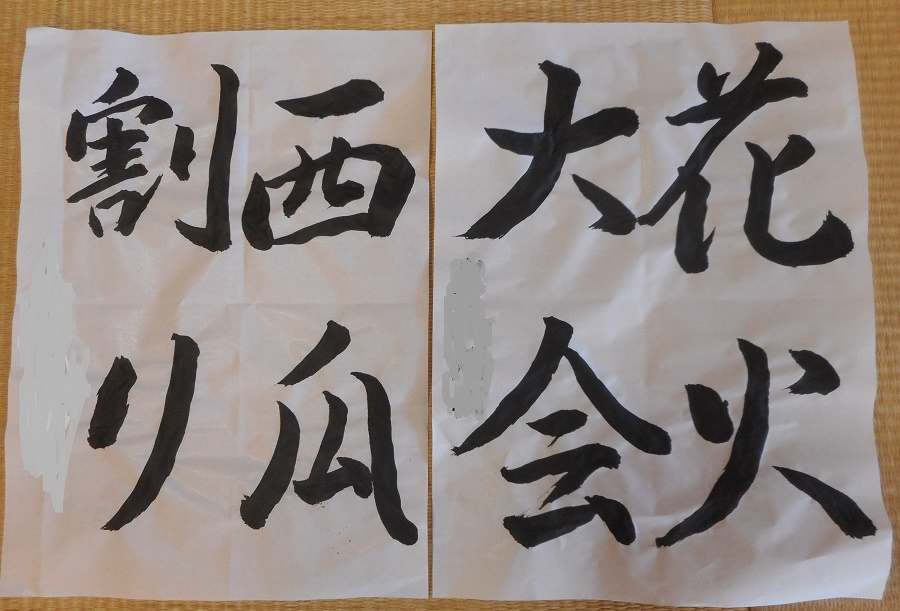 花火
大会
西瓜
割り